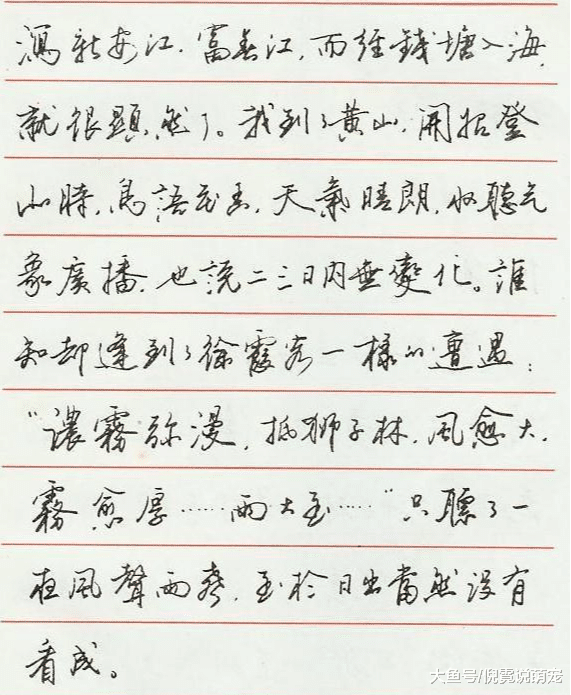 瀉新安江、富春江，而經錢塘入海，
就很顯然了。我到了黃山，開始登
山時，鳥語花香，天氣晴朗，收聽气
象廣播，也說二三日內無變化。誰
知却逢到了徐霞客一樣的遭遇：
“濃霧弥漫，抵狮子林，風愈大，
霧愈厚……雨大至……”只聽了一
夜風聲雨聲，至於日出當然没有
看成。
大鱼号/倪霓说萌宠